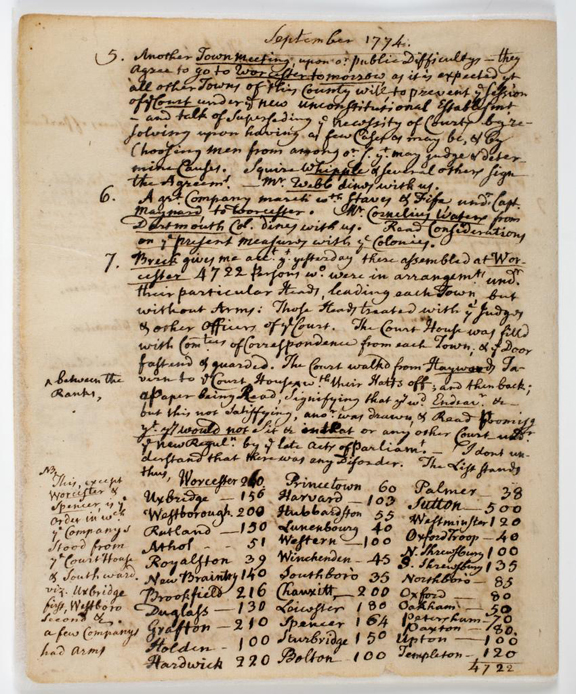 September 1774.
5. Another Town meeting, upon or public Difficultys — they
agree to go to Worcester tomorrow as it is expected yt
all other Towns of this County will to prevent ye session
of ye Court under ye new unconstitutional Establishmt
— and talk of Superseding ye necessity of Courts by re-
solving upon having as few Cases as may be, & by
Choosing men from among or yt may judge & deter-
mine Causes. Squire Whipple & several others sign
the Agreemt. — Mr. Webb dines with us.
6. A grt Company march wth Staves & Fife undr Capt.
Maynard to Worcester. Mr. Cornelius Waters from
Dartmouth Col. dines with us. Read Considerations
on ye present measures with ye Colonies.
7. Breck gives me acct yt yesterday there assembled at Wor-
cester 4722 Persons wo were in arrangemt undr
their particular Heads, leading each Town, but
without Arms: Those Heads treated with ye Judges
& other Officers of ye Court. The Court House was filld
with Comtees of Correspondence from each Town, & ye Door
fastend & guarded. The Court walkd from Haywards Ta-
vern to ye Court House ^ wth their Hatts off; and then back;
^ between the
Ranks,
a Paper being Read, Signifying that ye wd Endeavr &c
but this not Satisfying, anor was drawn, & Read Promisg
yt yy would not Sit or any other Court undr
ye new Regulns by ye late Acts of Parliamt — I dont un-
derstand that there was any Disorder. The List stands
thus, Worcester 260 Princetown 60 Palmer — 38
Uxbridge — 156 Harvard — 103 Sutton — 500
Westborough 200 Hubbardston 55 Westminster 120
Rutland — 150 Lunenbourg 40 Oxford Troop — 40
Athol — 51 Western — 100 N. Shrewsbury 100
Royalston 39 Winchendon — 45 S. Shrewsbury 135
New Braintry 140 Southboro 35 Northboro — 85
Brookfield 216 — 200 Oxford 80
Duglass — 130 Leicester 180 Oakham — 50
Grafton — 210 Spencer 164 Petersham — 70
Holden — 100 Sturbridge 150 Paxton — 80.
Hardwick 220 Bolton — 100 Upton — 100
Templeton — 120
4722
NB
This, except
Worcester &
Spencer, is ye
Order in wch
ye Companys
Stood from
ye Court House
& Southward.
viz. Uxbridge
first, Westboro
Second &.
a few Companys
had Arms